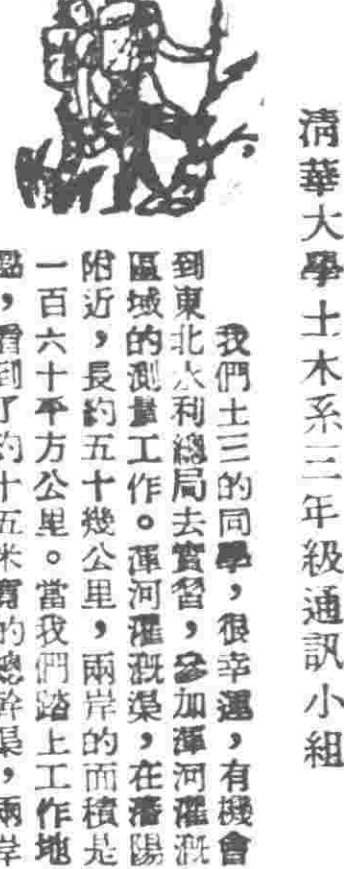 清華大學土木系三年級通訊小組
我們土三的同學，很幸運，有機會
到東北水利總局去實習，參加渾河灌溉
區域的測量工作。渾河灌溉渠，在瀋陽
附近，長約五十幾公里，兩岸的面積是
一百六十平方公里。當我們踏上工作地
點，看到了約十五米寬的總幹渠，兩岸